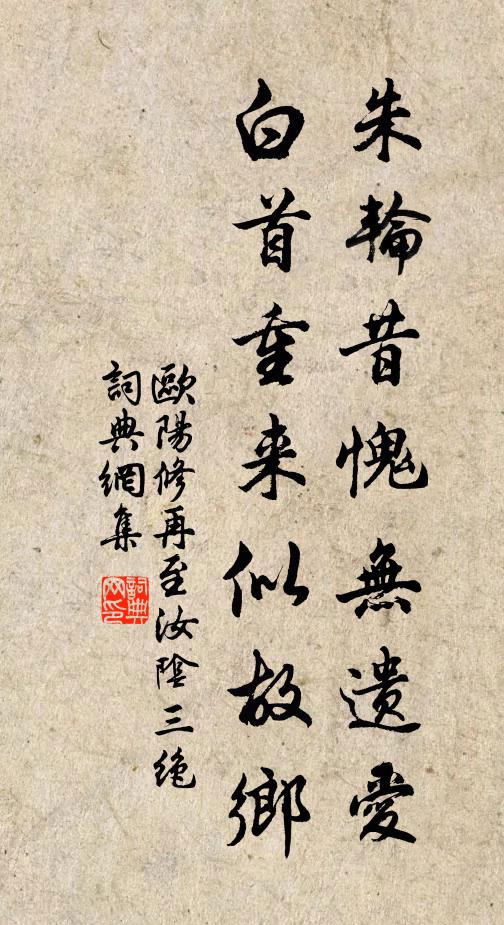 朱輪昔愧無遺愛
白首重来似故鄉
歐陽修再至汝陰三絶
詞典網集
詞典文印